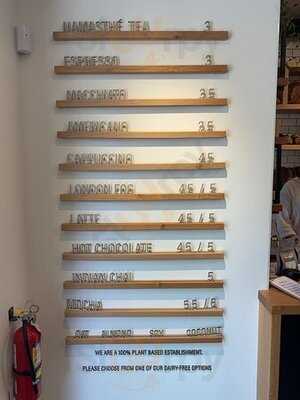 NAMASTHÉ TEA 3
ESPRESSO 3
MACCHIATO 3.5
AMERICANO 3.5
CAPPUCCINO 4.5
LONDON FOG 4.5 / 5
LATTE 4.5 / 5
HOT CHOCOLATE 4.5 / 5
INDIAN CHAI 5
MOCHA 5.5 / 6
OAT ALMOND SOY COCONUT
WE ARE A 100% PLANT BASED ESTABLISHMENT.
PLEASE CHOOSE FROM ONE OF OUR DAIRY-FREE OPTIONS